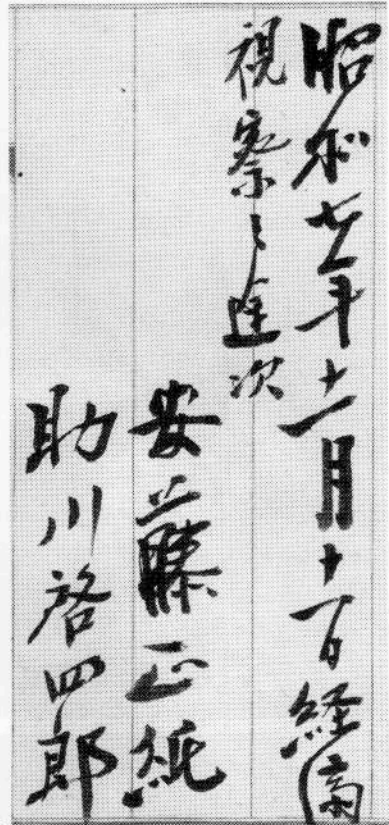 昭和年十一月十一日経
視察之途次
安藤正純
助川啓四郎